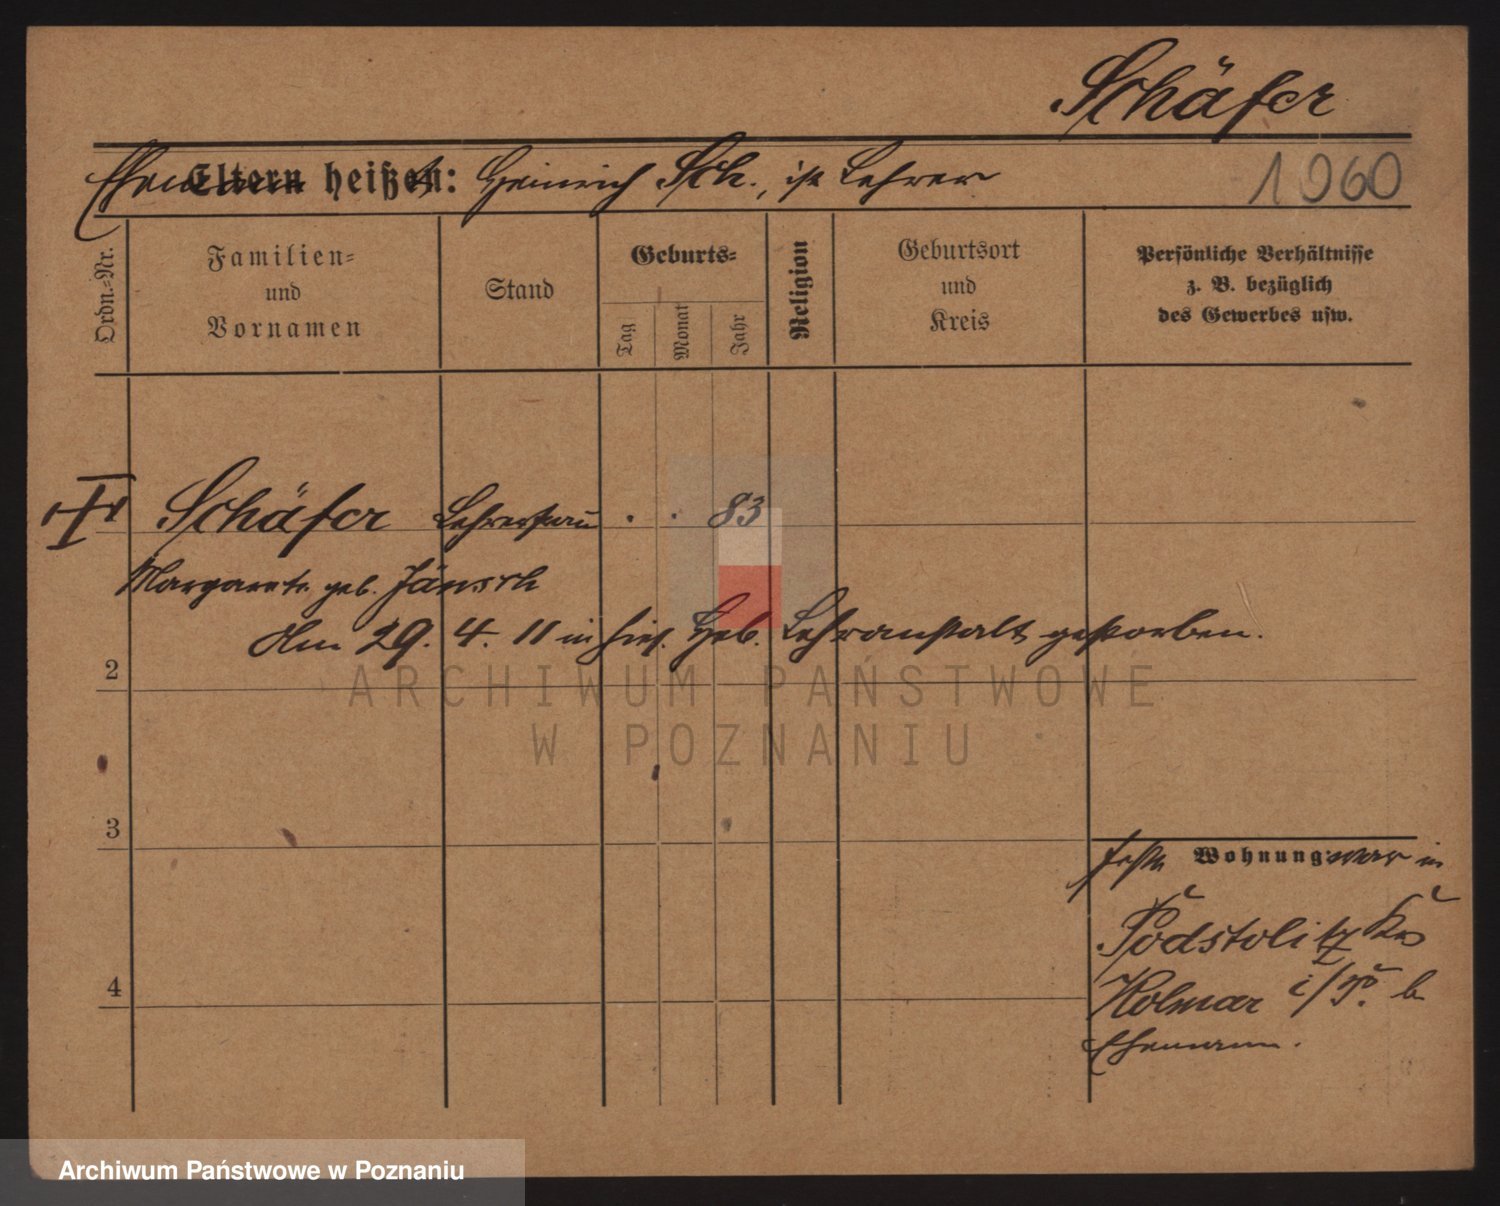 Schäfer
Ehemann heißt: Heinrich Sch., ist Lehrer
1960
Ordn.=Nr.
Familien=
und
Vornamen
Stand
Geburts=
Tag
Monat
Jahr
Religion
Geburtsort
und
Kreis
Persönliche Verhältnisse
z. B. bezüglich
des Gewerbes usw.
Schäfer Lehrersfrau . . 83
Margarete geb. Jänsch
Am 29. 4. 11 in hies. Heb. Lehranstalt gestorben.
2
3
4
feste Wohnung: war in
Podstolitz Krs
Kolmar i/P. b
Ehemann.
ARCHIWUM PAŃSTWOWE
W POZNANIU
Archiwum Państwowe w Poznaniu